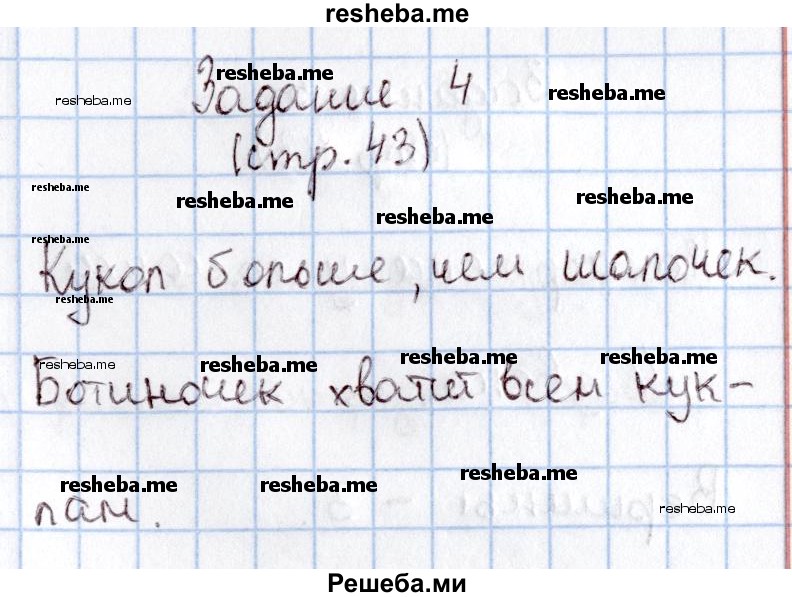 resheba.me
resheba.me
Задание 4
resheba.me
resheba.me
(стр. 43)
resheba.me
resheba.me
resheba.me
resheba.me
resheba.me
Кукол больше, чем шапочек.
resheba.me
resheba.me
resheba.me
resheba.me
resheba.me
Ботиночек хватит всем кук-
resheba.me
resheba.me
resheba.me
лам.
resheba.me
Решеба.ми